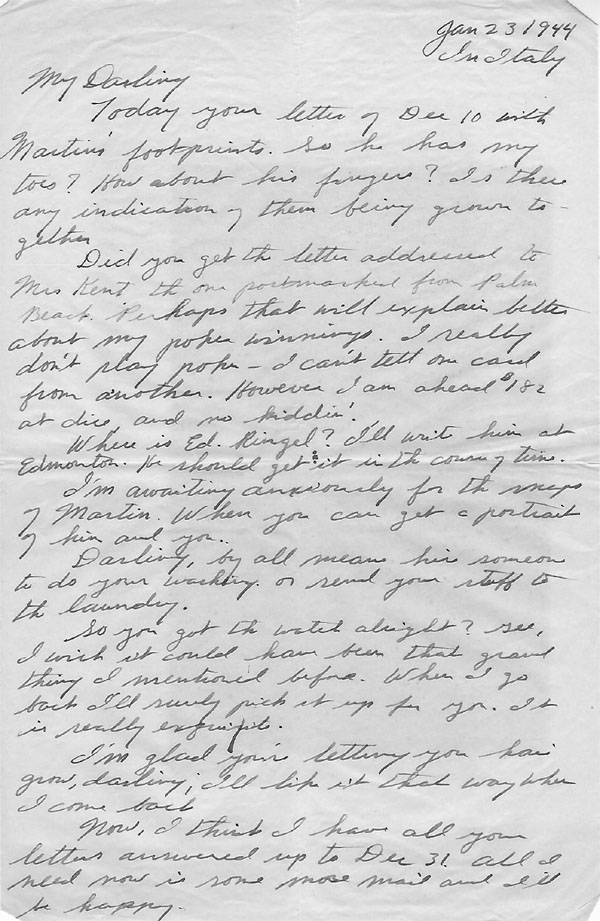 Jan 23 1944
In Italy
My Darling
Today your letter of Dec 10 with
Martin's footprints. So he has my
toes? How about his fingers? Is there
any indication of them being grown to-
gether
Did you get the letter addressed to
Mrs Kent th one postmarked from Palm
Beach. Perhaps that will explain better
about my poker winnings. I really
don't play poker – I can't tell one card
from another. However I am ahead $182
at dice and no kiddin'.
Where is Ed. Ringel? I'll write him at
Edmonton. He should get it in th course of time.
I'm awaiting anxiously for th snaps
of Martin. When you can get a portrait
of him and you..
Darling, by all means hire someone
to do your washing or send your stuff to
th laundry.
So you got th watch alright? Gee,
I wish it could have been that grand
thing I mentioned before. When I go
back I'll surely pick it up for you. It
is really exquisite.
I'm glad you're letting you hair
grow, darling; I'll like it that way when
I come back
Now, I think I have all your
letters answered up to Dec 31. All I
need now is some more mail and I'll
be happy.